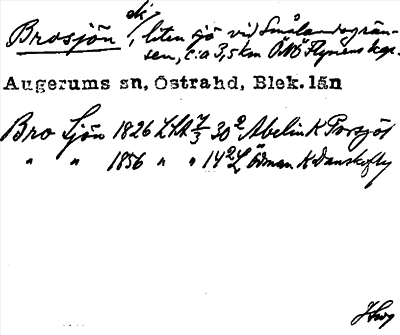 Brosjön, liten sjö vid Smålandsgrän-
sen, c:a 3,5 km ÖNÖ Flyens kap.
Augerums sn, Östrahd, Blek. län
Bro Sjön 1826 LSA 30 Abelin K Porsjöt
" " 1856 " " 14 Ödman K Danskafly